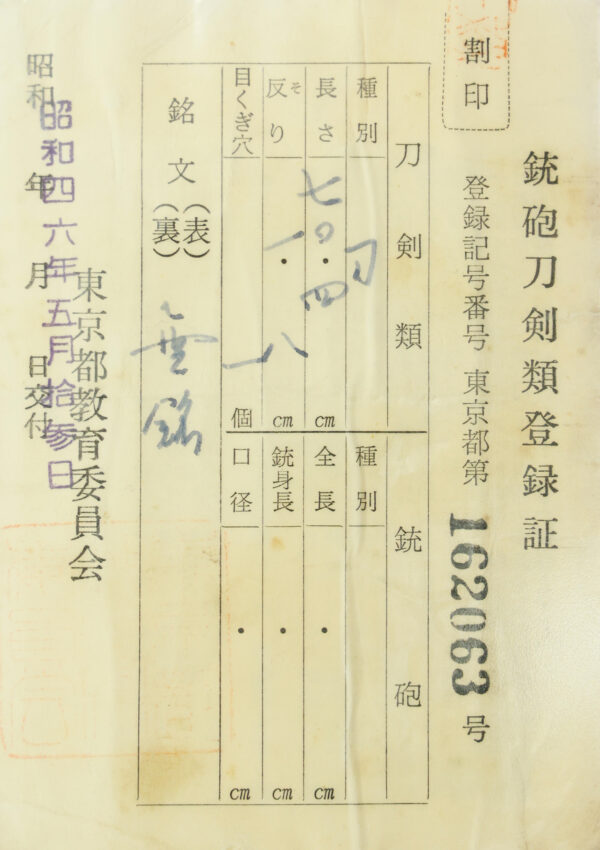 銃砲刀剣類登録証
割印
登録記号番号 東京都第 162063 号
刀剣類
種別 刀
長さ 七〇・四 cm
反り そ 一・八 cm
目くぎ穴 一 個
銘文(表)(裏) 無銘
銃砲
種別
全長 ・ cm
銃身長 ・ cm
口径 ・ cm
東京都教育委員会
昭和四六年五月拾参日
昭和 年 月 日交付